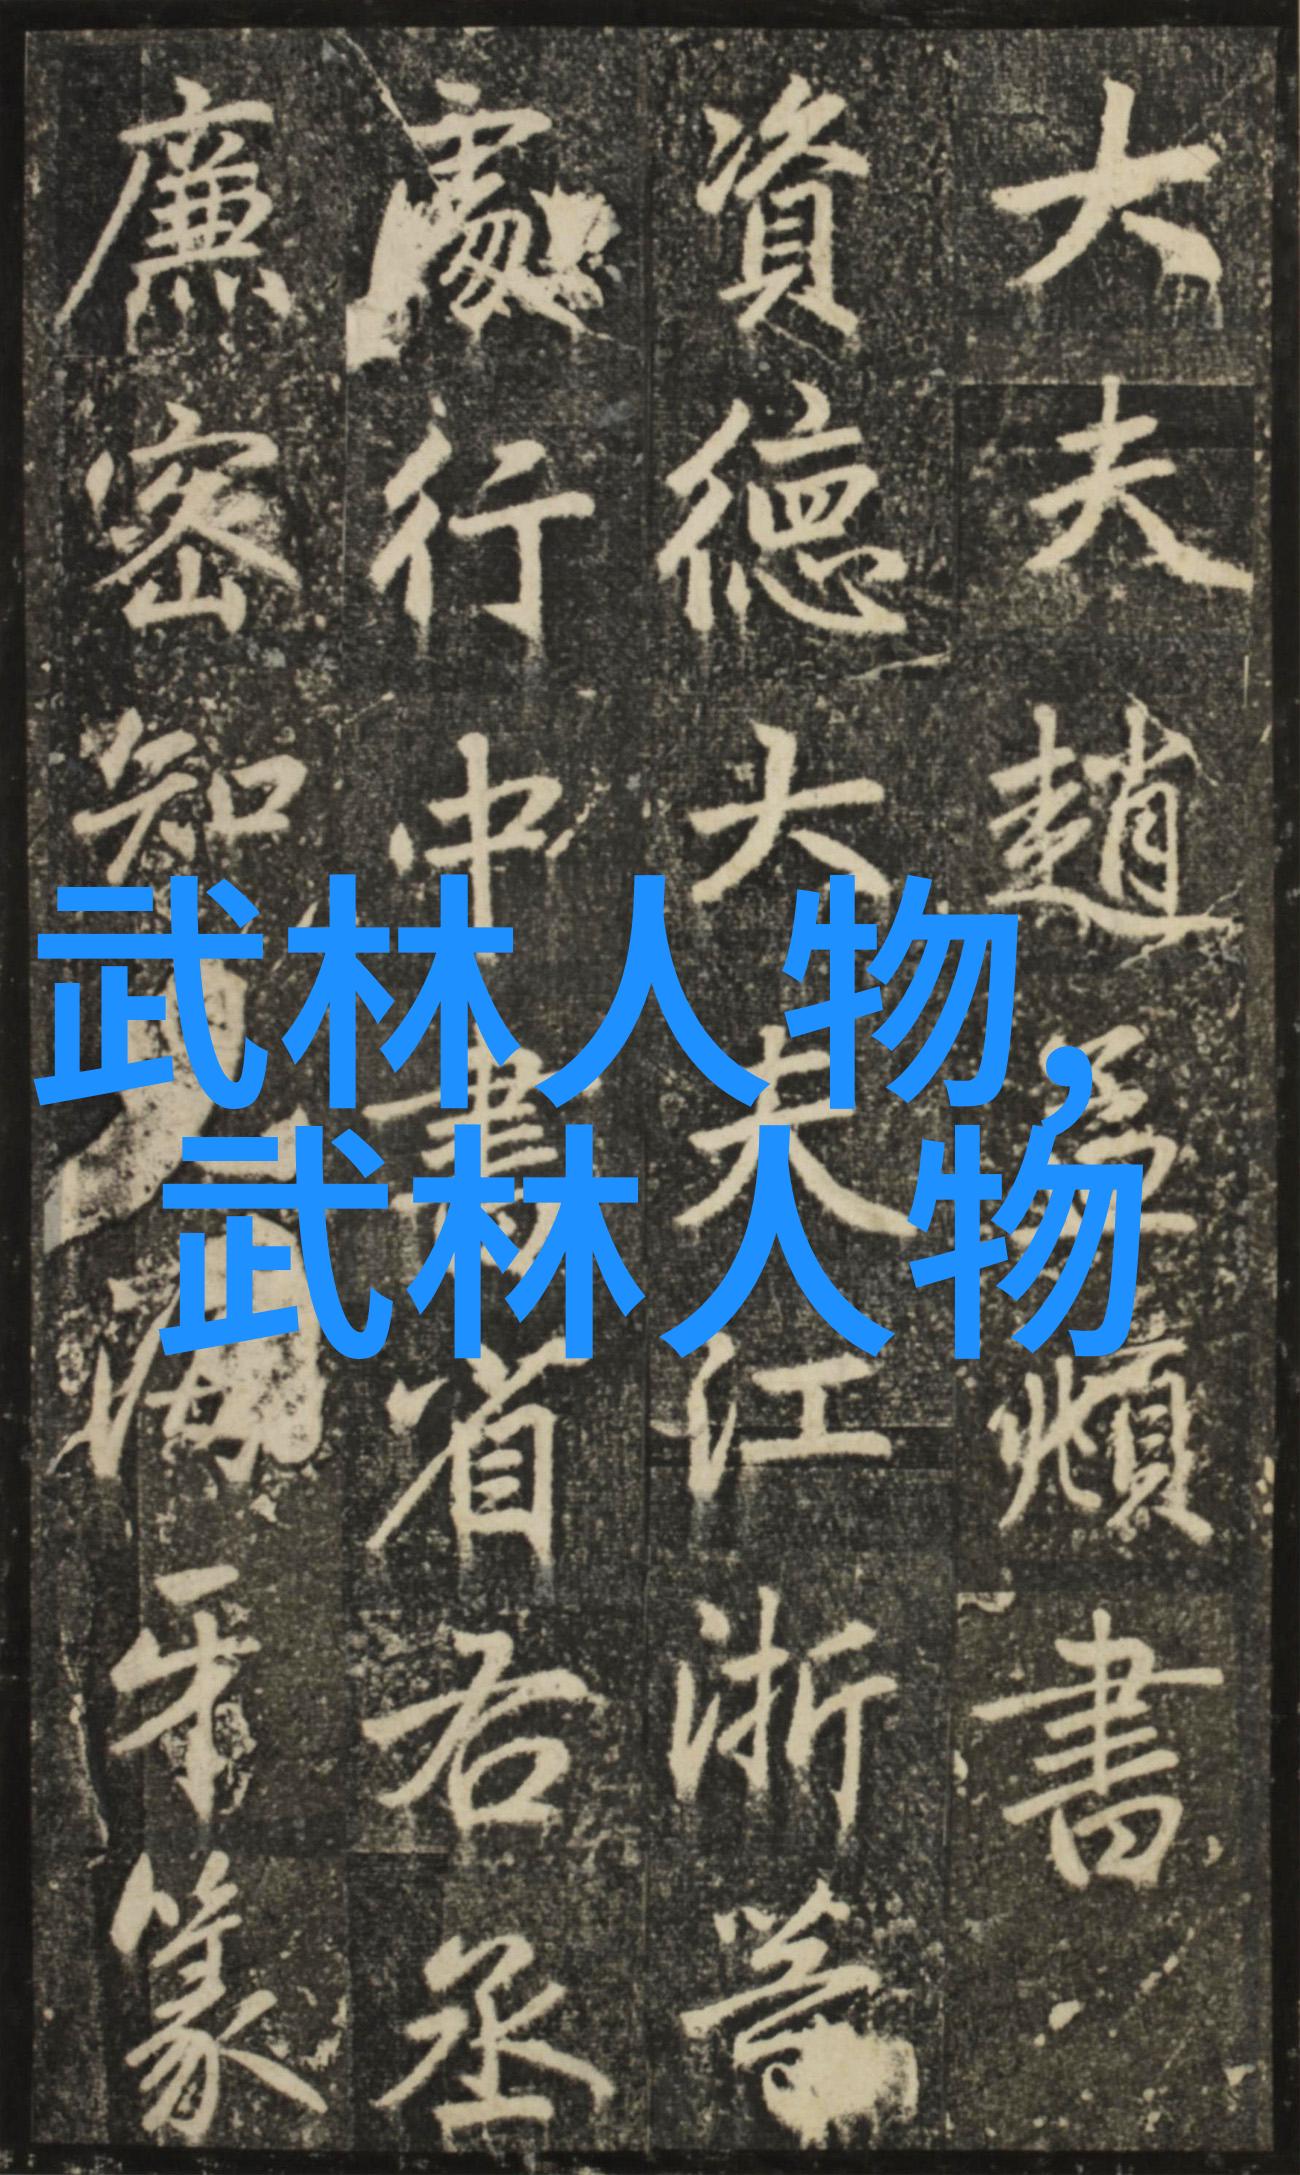 大夫趙孟頫書
資德大夫江浙等
處行中書省右丞
廉密知海牙篆
武林人物，
武林人物